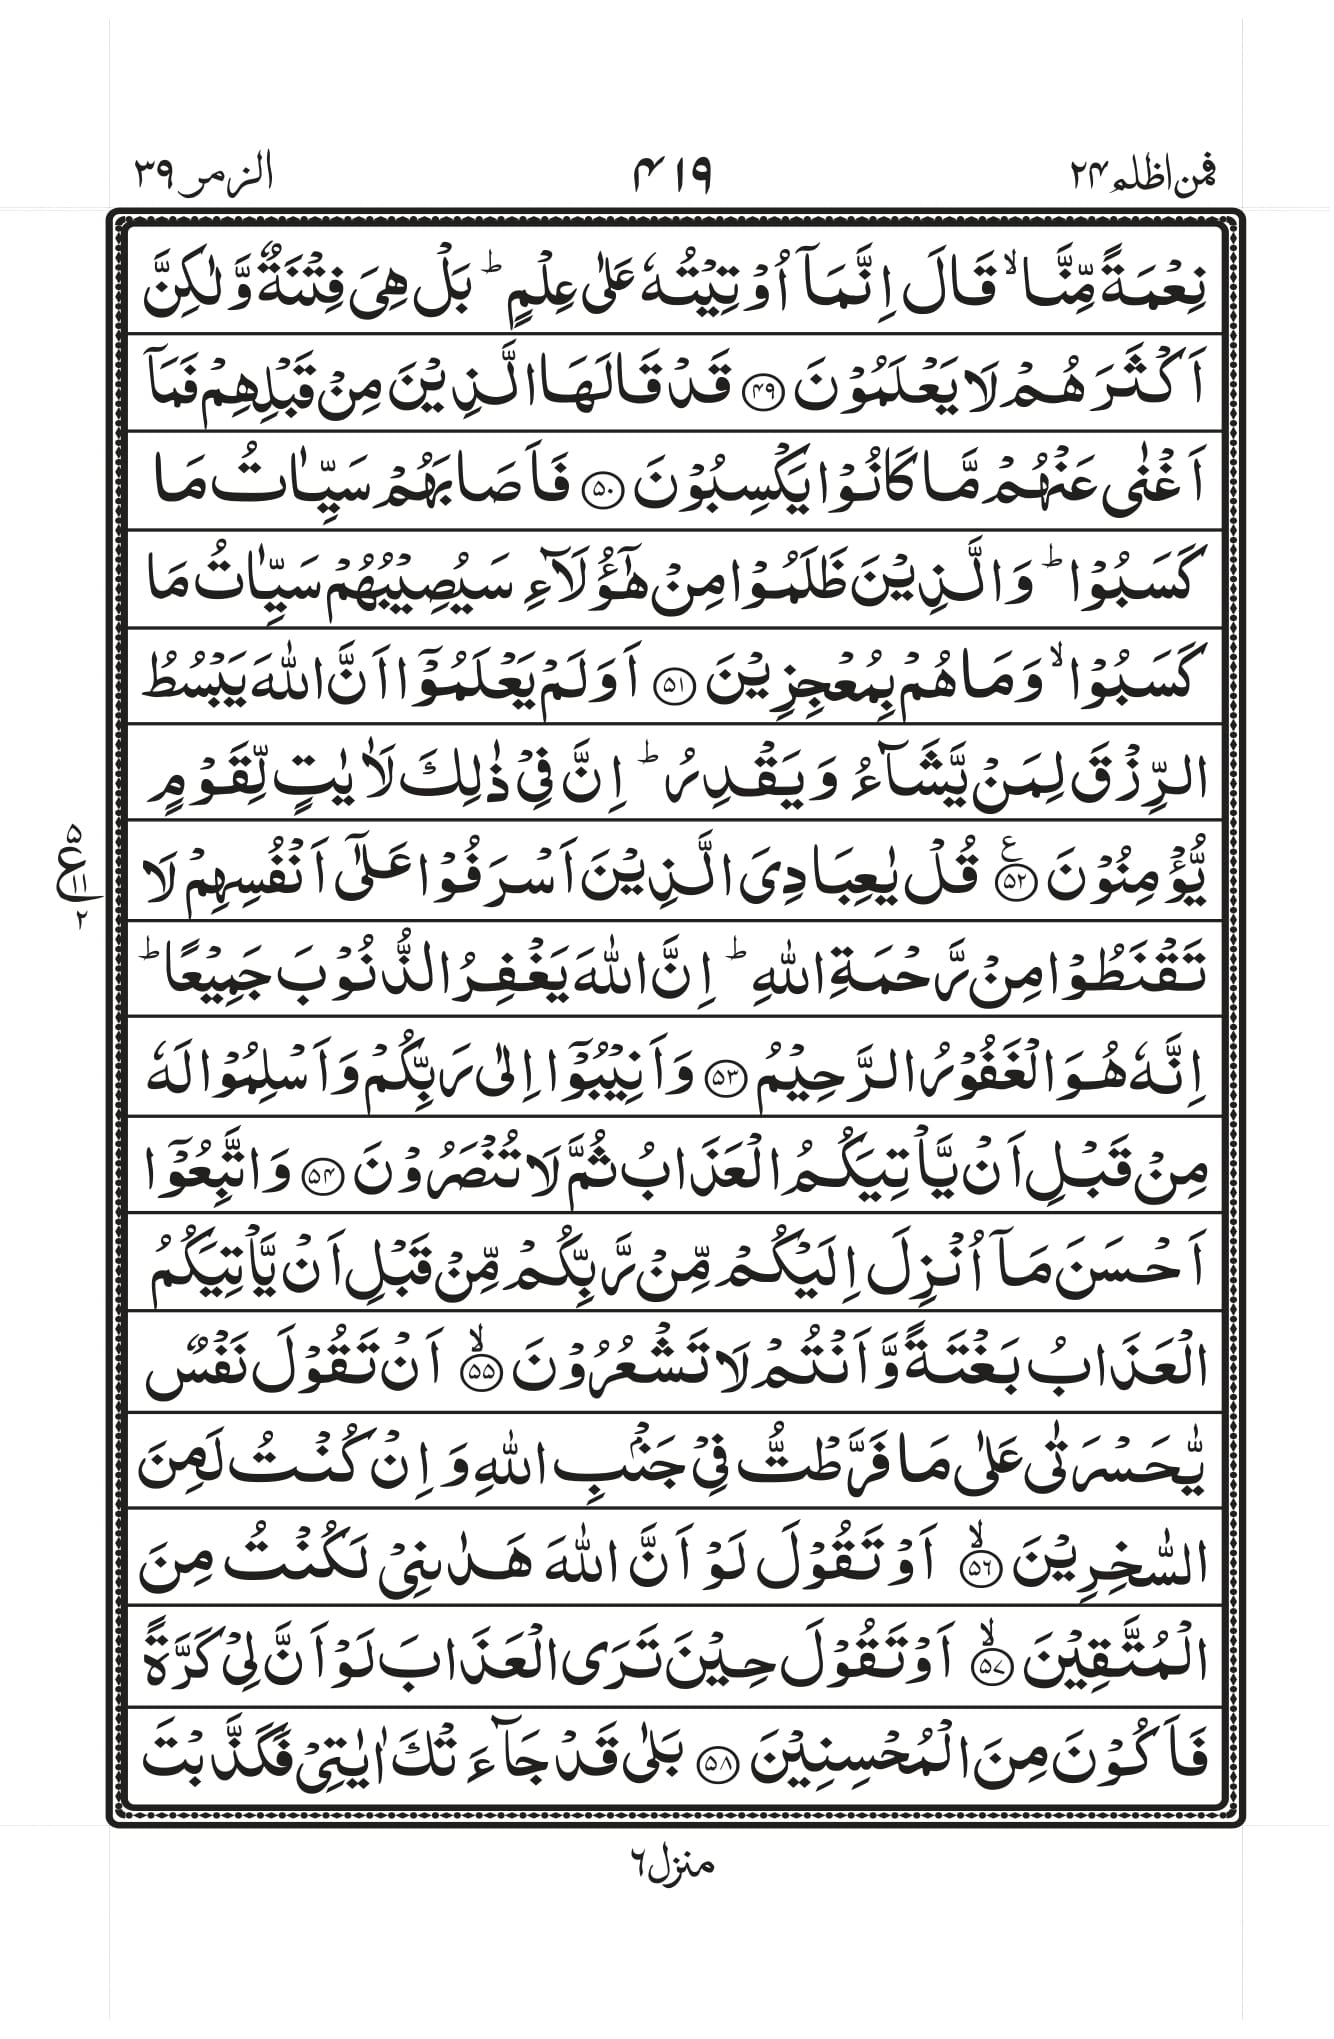 فمن اظلم ۲۴
۴۱۹
الزمر ۳۹
نِعۡمَةً مِّنَّا ۙ قَالَ اِنَّمَاۤ اُوۡتِيۡتُهٗ عَلٰى عِلۡمٍ ؕ بَلۡ هِىَ فِتۡنَةٌ وَّلٰـكِنَّ
اَكۡثَرَهُمۡ لَا يَعۡلَمُوۡنَ ﴿۴۹﴾ قَدۡ قَالَهَا الَّذِيۡنَ مِنۡ قَبۡلِهِمۡ فَمَاۤ
اَغۡنٰى عَنۡهُمۡ مَّا كَانُوۡا يَكۡسِبُوۡنَ ﴿۵۰﴾ فَاَصَابَهُمۡ سَيِّاٰتُ مَا
كَسَبُوۡا ؕ وَالَّذِيۡنَ ظَلَمُوۡا مِنۡ هٰٓؤُلَاۤءِ سَيُصِيۡبُهُمۡ سَيِّاٰتُ مَا
كَسَبُوۡا ۙ وَمَا هُمۡ بِمُعۡجِزِيۡنَ ﴿۵۱﴾ اَوَلَمۡ يَعۡلَمُوۡۤا اَنَّ اللّٰهَ يَبۡسُطُ
الرِّزۡقَ لِمَنۡ يَّشَآءُ وَيَقۡدِرُ ؕ اِنَّ فِىۡ ذٰلِكَ لَاٰيٰتٍ لِّقَوۡمٍ
يُّؤۡمِنُوۡنَ ﴿۵۲﴾ ع قُلۡ يٰعِبَادِىَ الَّذِيۡنَ اَسۡرَفُوۡا عَلٰٓى اَنۡفُسِهِمۡ لَا
۵
ع
۱۱
۲
تَقۡنَطُوۡا مِنۡ رَّحۡمَةِ اللّٰهِ ؕ اِنَّ اللّٰهَ يَغۡفِرُ الذُّنُوۡبَ جَمِيۡعًا ؕ
اِنَّهٗ هُوَ الۡغَفُوۡرُ الرَّحِيۡمُ ﴿۵۳﴾ وَاَنِيۡبُوۡۤا اِلٰى رَبِّكُمۡ وَاَسۡلِمُوۡا لَهٗ
مِنۡ قَبۡلِ اَنۡ يَّاۡتِيَكُمُ الۡعَذَابُ ثُمَّ لَا تُنۡصَرُوۡنَ ﴿۵۴﴾ وَاتَّبِعُوۡۤا
اَحۡسَنَ مَاۤ اُنۡزِلَ اِلَيۡكُمۡ مِّنۡ رَّبِّكُمۡ مِّنۡ قَبۡلِ اَنۡ يَّاۡتِيَكُمُ
الۡعَذَابُ بَغۡتَةً وَّاَنۡتُمۡ لَا تَشۡعُرُوۡنَ ۙ ﴿۵۵﴾ اَنۡ تَقُوۡلَ نَفۡسٌ
يّٰحَسۡرَتٰى عَلٰى مَا فَرَّطْتُّ فِىۡ جَنۡۢبِ اللّٰهِ وَاِنۡ كُنۡتُ لَمِنَ
السّٰخِرِيۡنَ ۙ ﴿۵۶﴾ اَوۡ تَقُوۡلَ لَوۡ اَنَّ اللّٰهَ هَدٰٮنِىۡ لَكُنۡتُ مِنَ
الۡمُتَّقِيۡنَ ۙ ﴿۵۷﴾ اَوۡ تَقُوۡلَ حِيۡنَ تَرَى الۡعَذَابَ لَوۡ اَنَّ لِىۡ كَرَّةً
فَاَكُوۡنَ مِنَ الۡمُحۡسِنِيۡنَ ﴿۵۸﴾ بَلٰى قَدۡ جَآءَتۡكَ اٰيٰتِىۡ فَكَذَّبۡتَ
منزل ۶